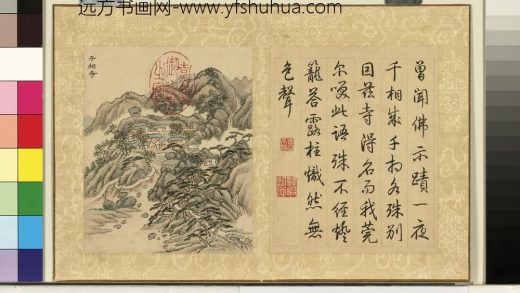 远方书画网-www.yfshuhua.com
千相寺
曾聞佛示蹟一夜
千相成千相各殊別
因茲寺得名而我莞
尔咲此語殊不經燈
籠荅露柱熾然無
色聲